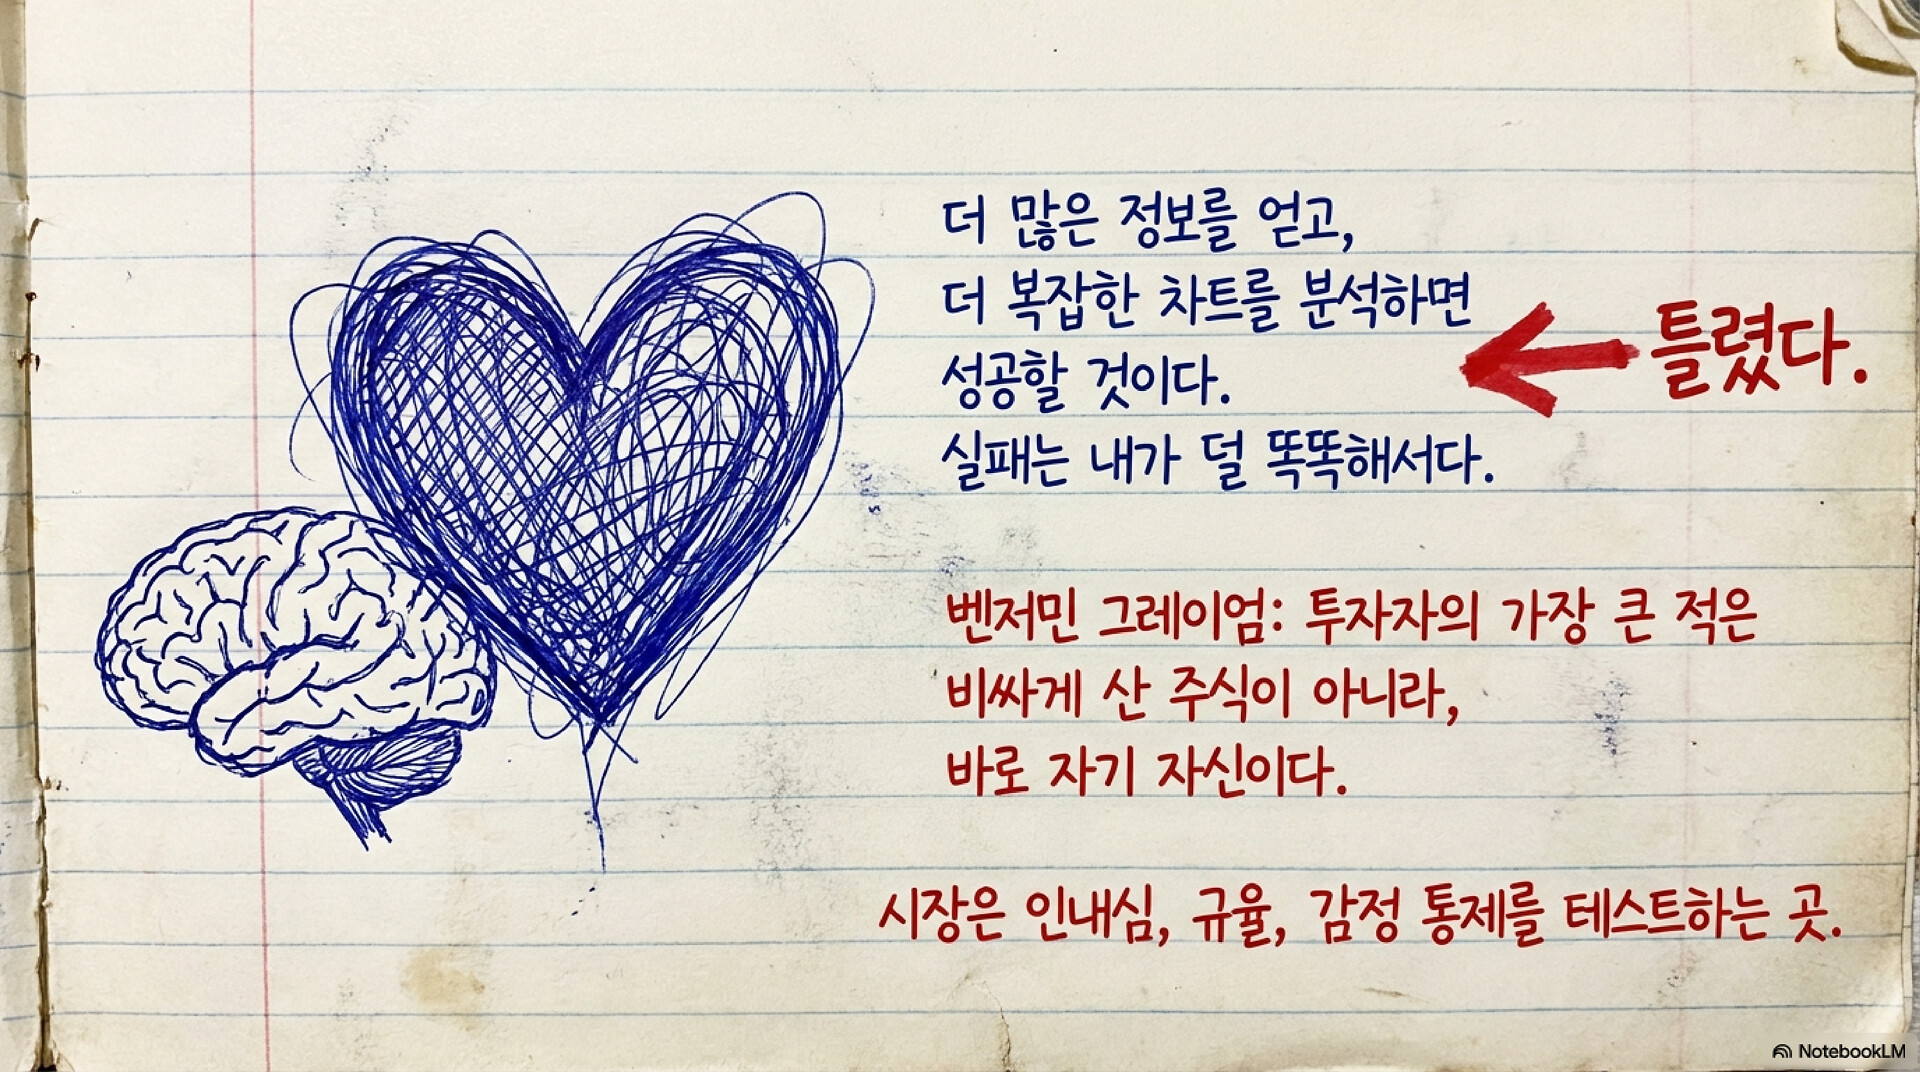 더 많은 정보를 얻고,
더 복잡한 차트를 분석하면
성공할 것이다.
실패는 내가 덜 똑똑해서다.
틀렸다.
벤저민 그레이엄: 투자자의 가장 큰 적은
비싸게 산 주식이 아니라,
바로 자기 자신이다.
시장은 인내심, 규율, 감정 통제를 테스트하는 곳.
NotebookLM